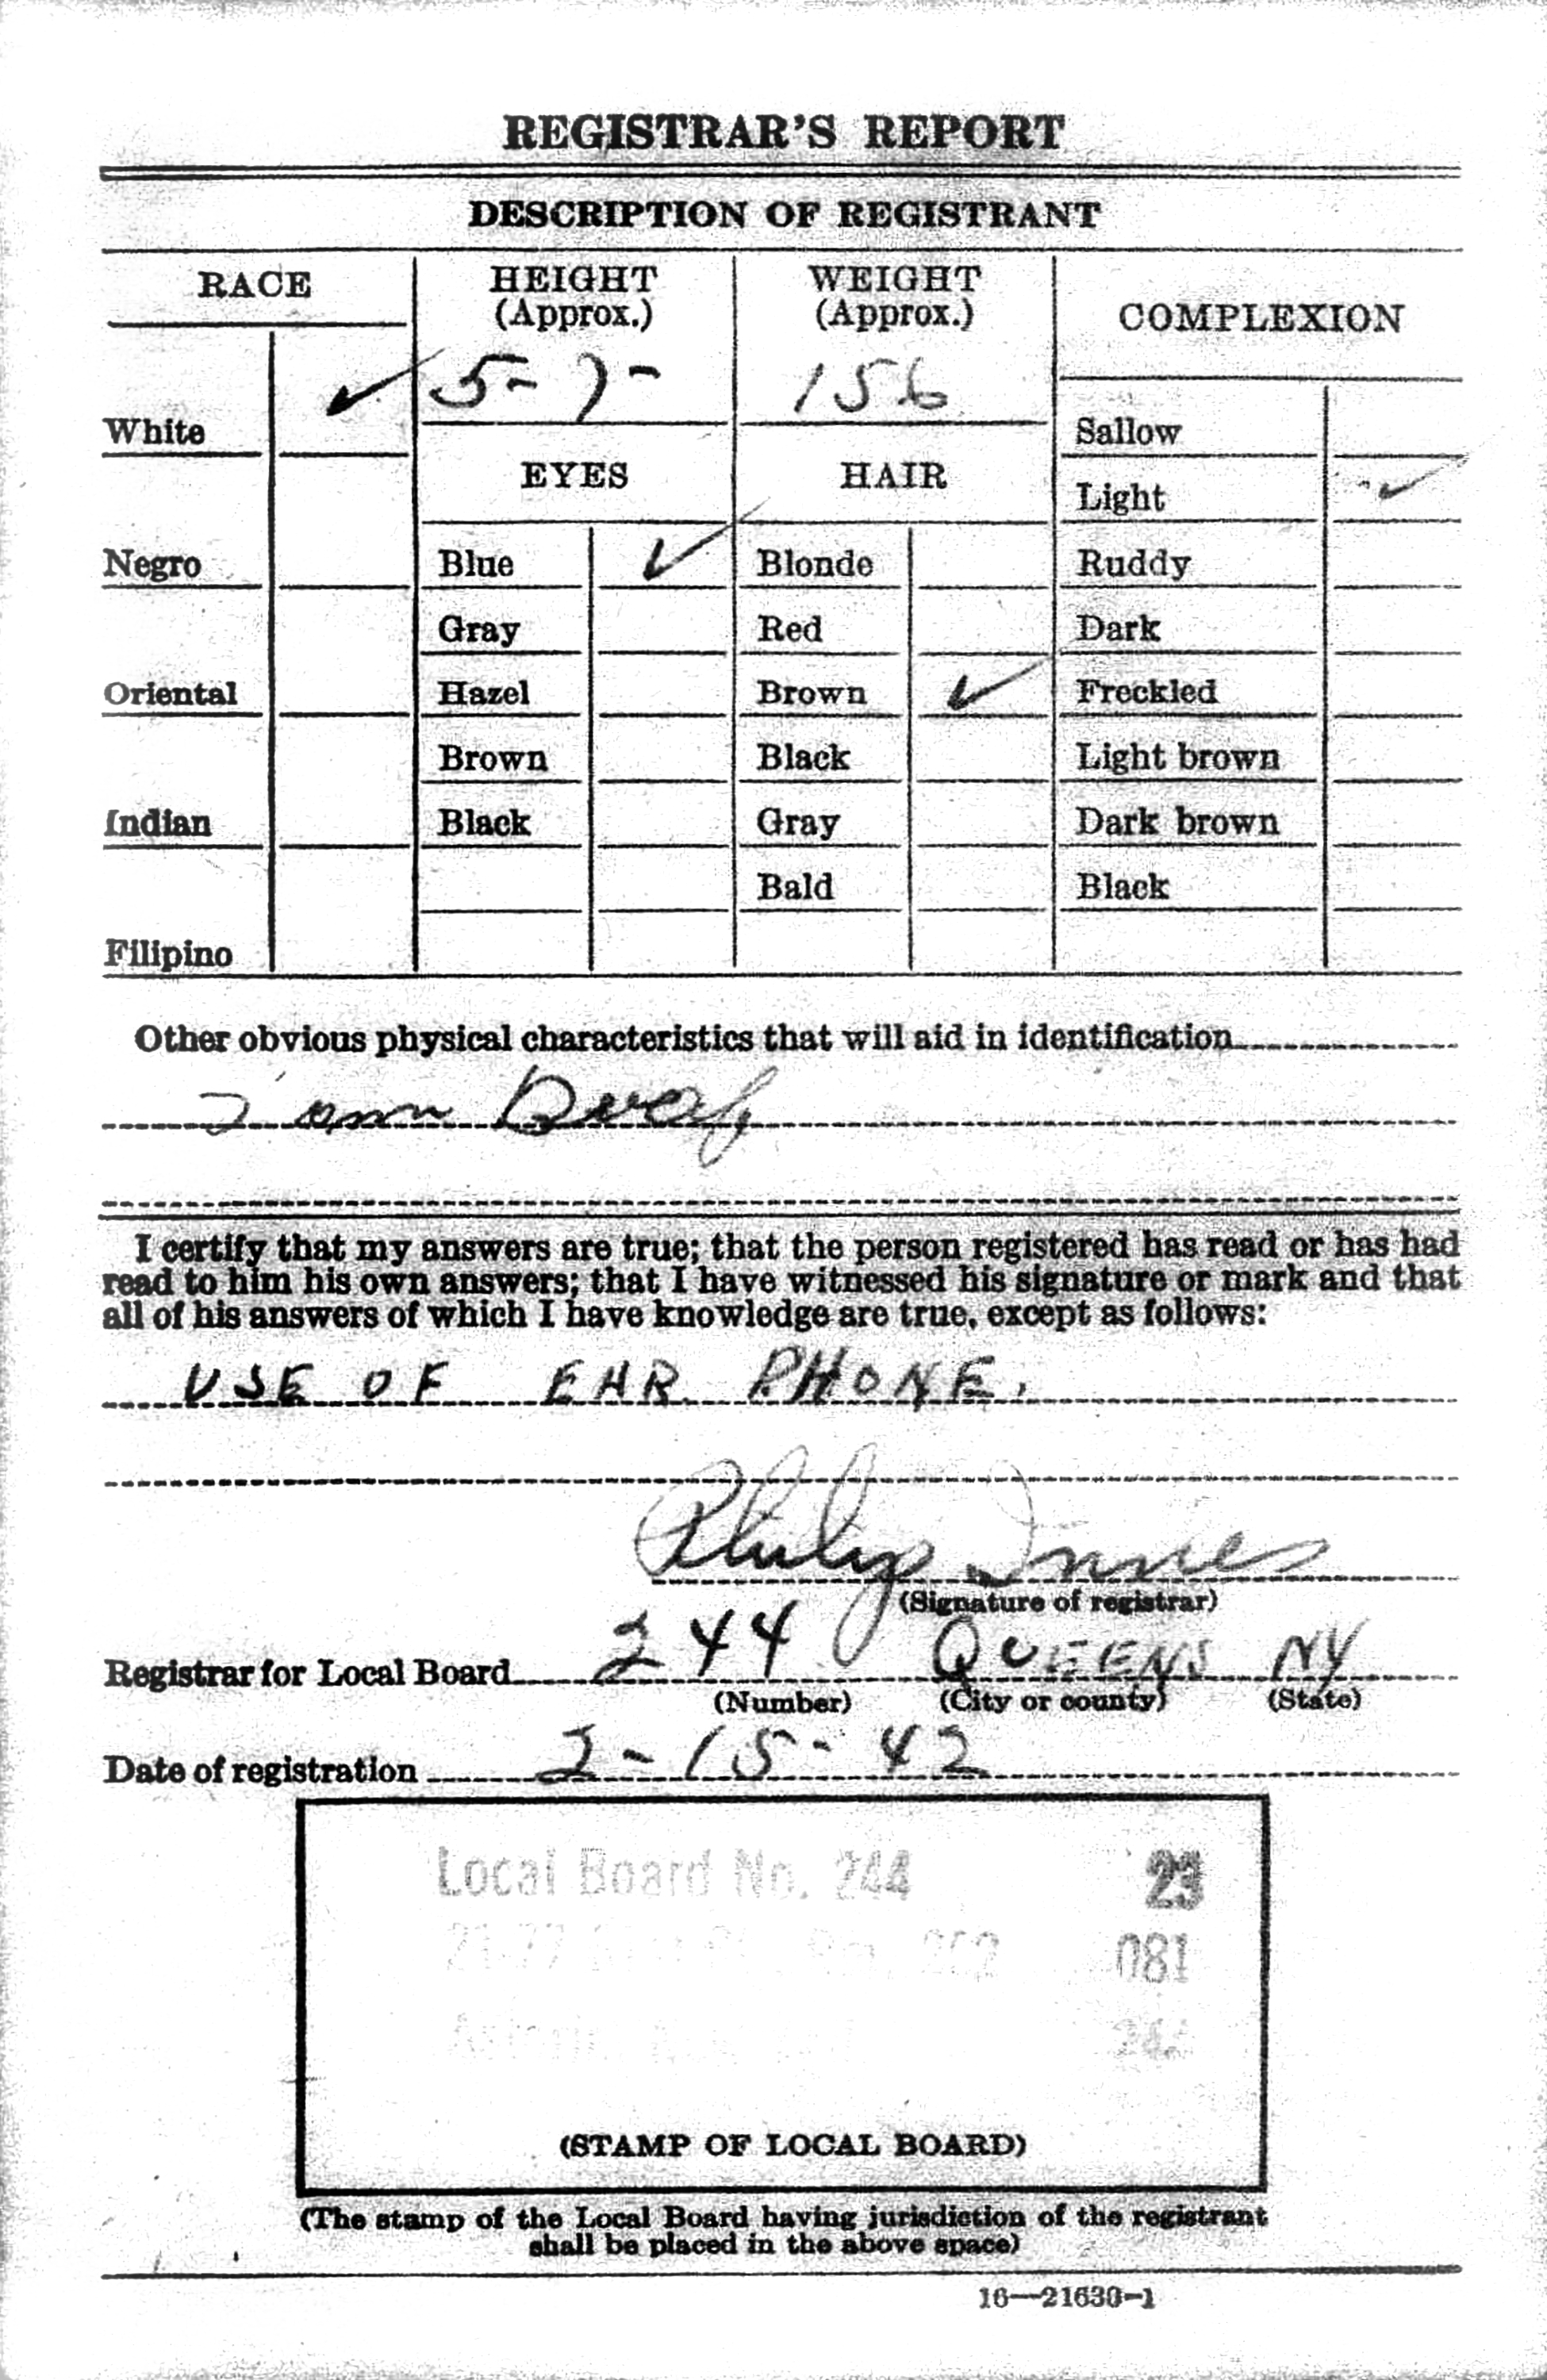 REGISTRAR'S REPORT
DESCRIPTION OF REGISTRANT
RACE
HEIGHT
(Approx.)
WEIGHT
(Approx.)
COMPLEXION
5-7-
156
White ✓
Sallow
EYES
HAIR
Light ✓
Negro
Blue ✓
Blonde
Ruddy
Gray
Red
Dark
Oriental
Hazel
Brown ✓
Freckled
Brown
Black
Light brown
Indian
Black
Gray
Dark brown
Bald
Black
Filipino
Other obvious physical characteristics that will aid in identification
I am
I certify that my answers are true; that the person registered has read or has had
read to him his own answers; that I have witnessed his signature or mark and that
all of his answers of which I have knowledge are true, except as follows:
USE OF EAR PHONE.
Philip Innes
(Signature of registrar)
Registrar for Local Board 244 QUEENS NY
(Number) (City or county) (State)
Date of registration 2-15-42
Local Board No. 244 23
081
244
(STAMP OF LOCAL BOARD)
(The stamp of the Local Board having jurisdiction of the registrant
shall be placed in the above space)
16—21630-1